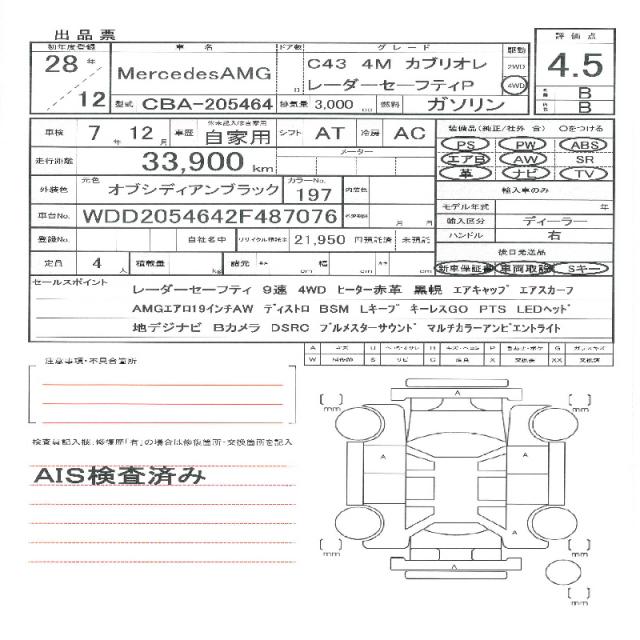 出品票
評価点
初年度登録 車名 ドア数 グレード 駆動
28年 12 MercedesAMG D C43 4M カブリオレ レーダーセーフティP 2WD 4WD 4.5
型式 CBA-205464 排気量 3,000 cc 燃料 ガソリン
B
B
車検 7年 12月 車歴 自家用 シフト AT 冷房 AC
装備品(純正/社外 含) ○をつける
PS PW ABS
走行距離 33,900 km メーター
エアB AW SR
革 ナビ TV
外装色 元色 オブシディアンブラック カラーNo. 197 内装色
輸入車のみ
モデル年式 年
車台No. WDD2054642F487076 月 月
輸入区分 ディーラー
ハンドル 右
登録No. 自社名中 リサイクル預託金 21,950 円預託済 未預託
後日発送品
定員 4人 積載量 kg 諸元 長さ cm 幅 cm 高さ cm
新車保証書 車両取説 Sキー
セールスポイント
レーダーセーフティ 9速 4WD ヒーター赤革 黒幌 エアキャップ エアスカーフ
AMGエアロ19インチAW ディストロ BSM Lキープ キーレスGO PTS LEDヘッド
地デジナビ Bカメラ DSRC ブルメスターサウンド マルチカラーアンビエントライト
注意事項・不具合箇所
検査員記入欄、修復歴「有」の場合は修復箇所・交換箇所を記入
AIS検査済み
A
mm mm
A A
mm mm
A
mm